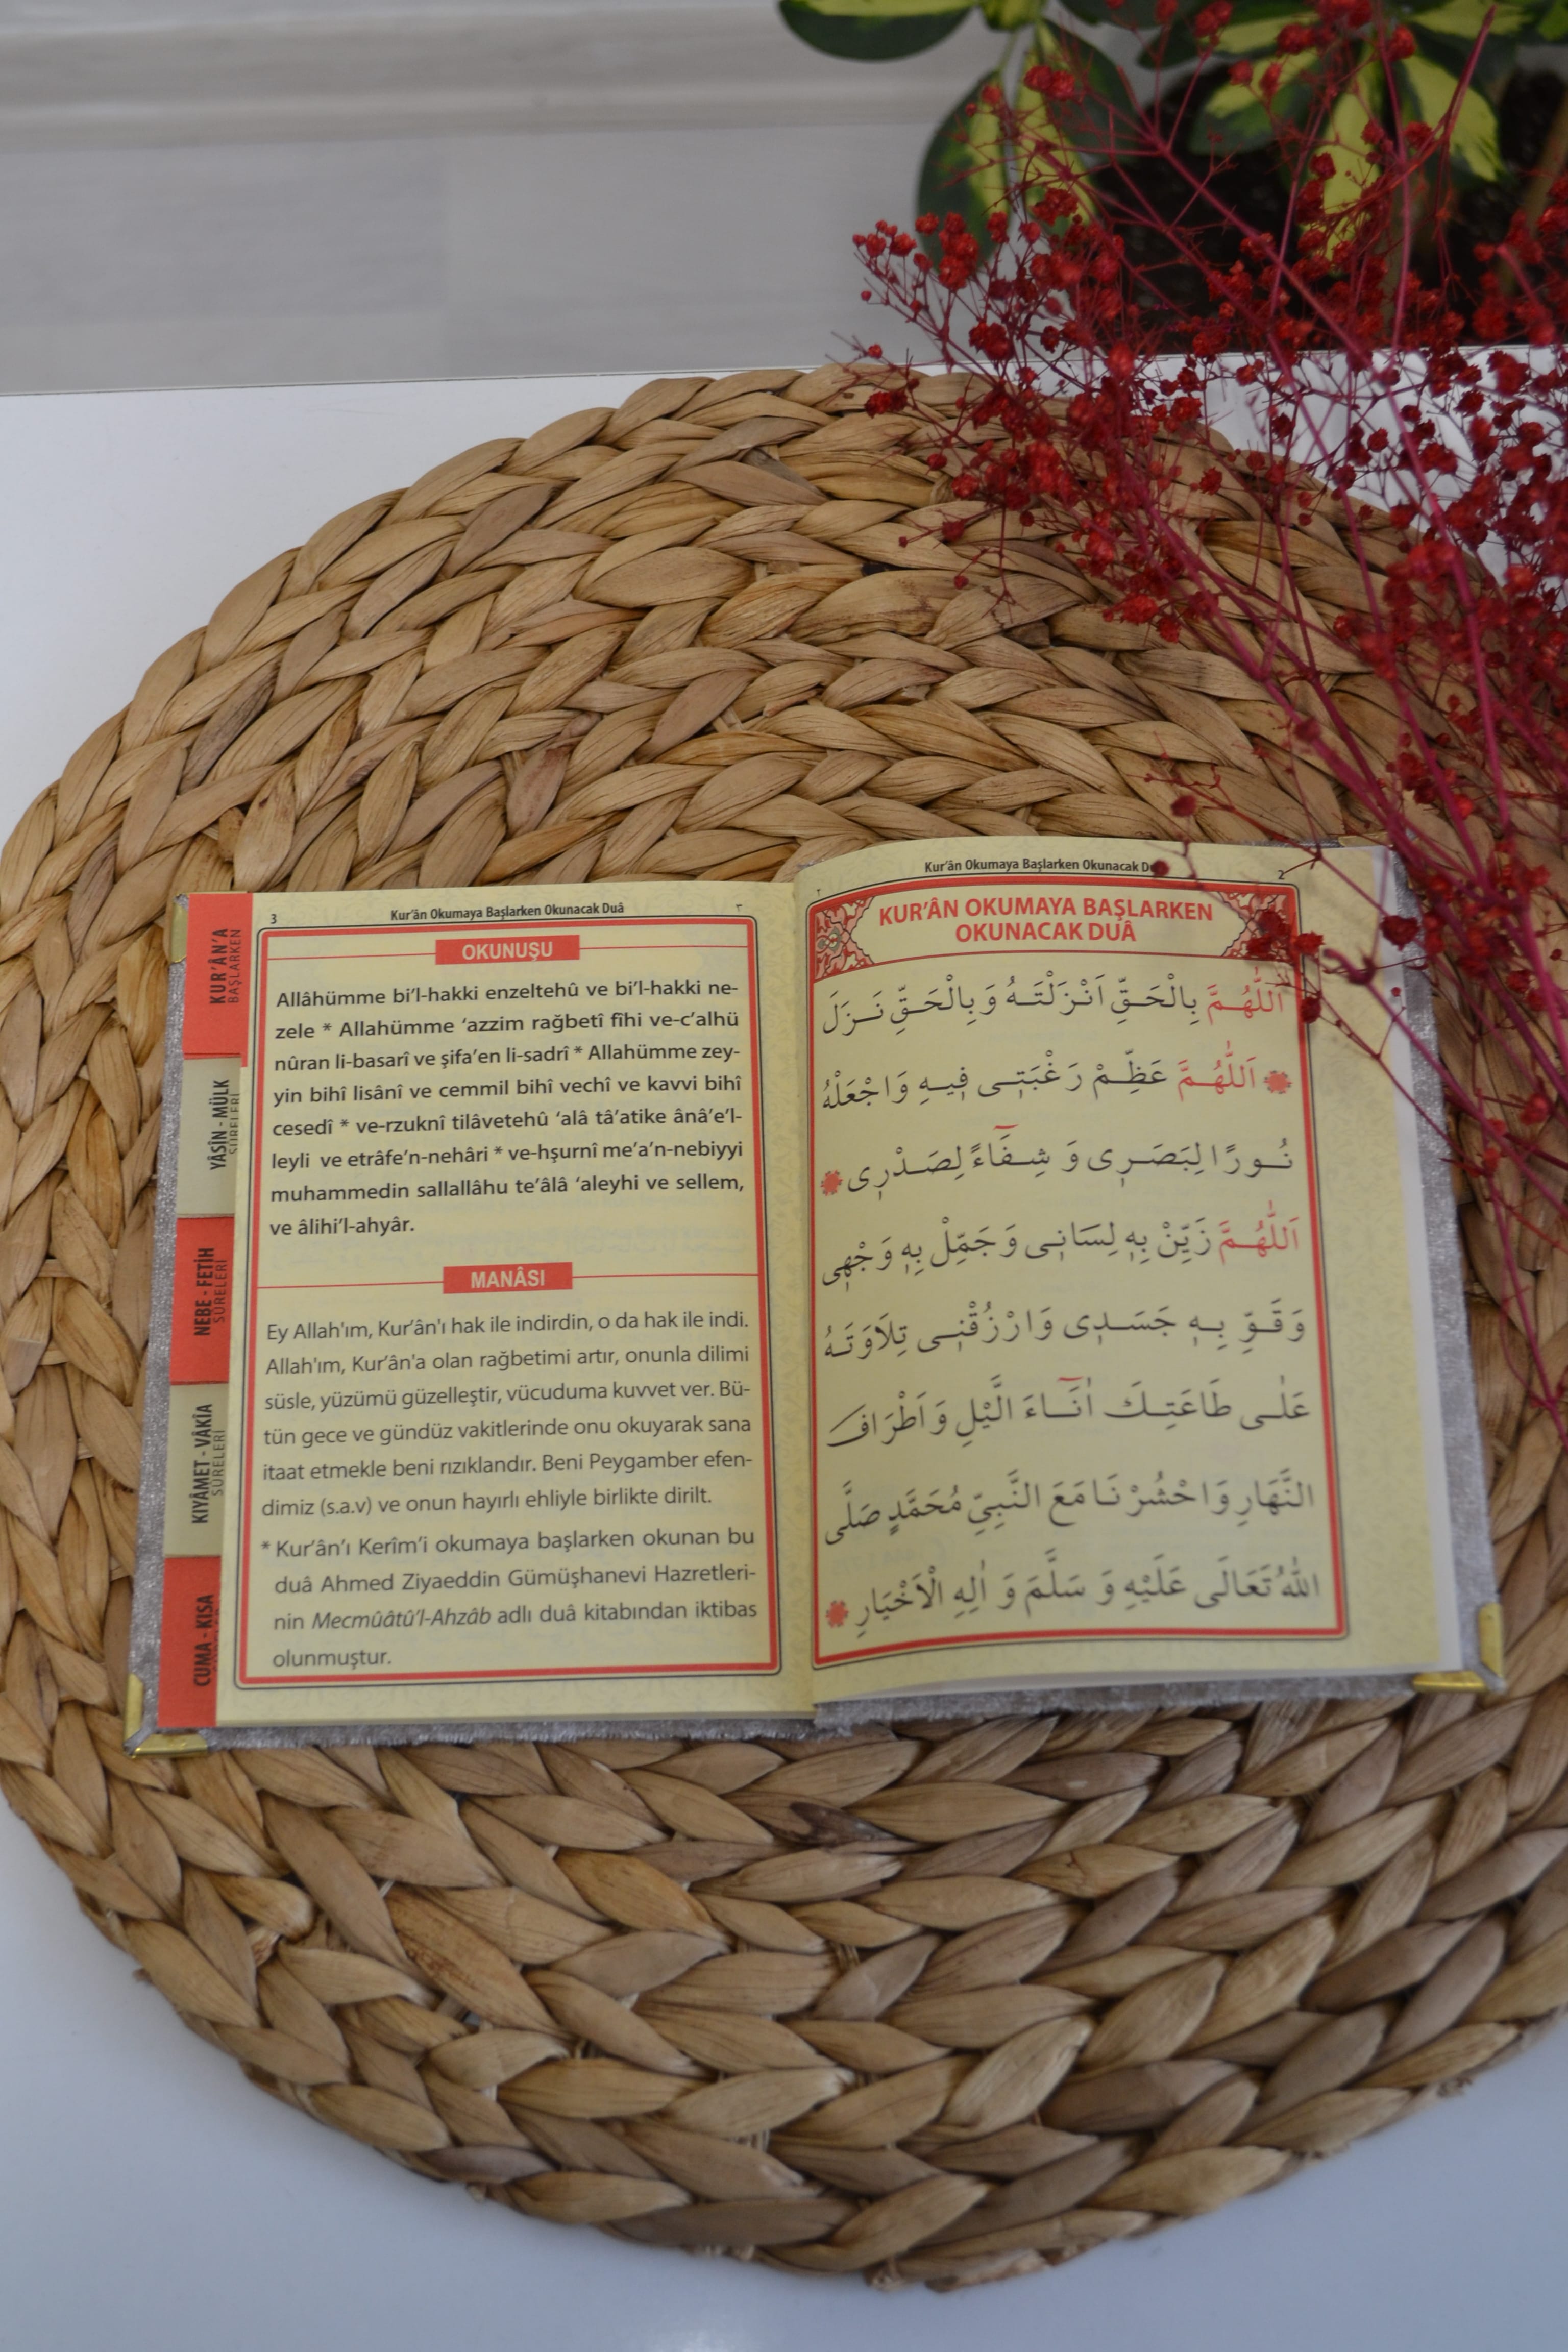 Kur'ân Okumaya Başlarken Okunacak
2
KUR'ÂN OKUMAYA BAŞLARKEN
OKUNACAK DUÂ
اَللّٰهُمَّ بِالْحَقِّ اَنْزَلْتَهُ وَبِالْحَقِّ نَزَلَ
اَللّٰهُمَّ عَظِّمْ رَغْبَتِى فِيهِ وَاجْعَلْهُ
نُورًا لِبَصَرِى وَ شِفَٓاءً لِصَدْرِى
اَللّٰهُمَّ زَيِّنْ بِهِ لِسَانِى وَجَمِّلْ بِهِ وَجْهِى
وَقَوِّ بِهِ جَسَدِى وَارْزُقْنِى تِلَاوَتَهُ
عَلٰى طَاعَتِكَ اٰنَٓاءَ الَّيْلِ وَاَطْرَافَ
النَّهَارِ وَاحْشُرْنَا مَعَ النَّبِيِّ مُحَمَّدٍ صَلَّى
اللّٰهُ تَعَالَى عَلَيْهِ وَ سَلَّمَ وَ اٰلِهِ الْاَخْيَارِ
3 Kur'ân Okumaya Başlarken Okunacak Duâ ٣
OKUNUŞU
Allâhümme bi'l-hakki enzeltehû ve bi'l-hakki ne-
zele * Allahümme 'azzim rağbetî fîhi ve-c'alhü
nûran li-basarî ve şifa'en li-sadrî * Allahümme zey-
yin bihî lisânî ve cemmil bihî vechî ve kavvi bihî
cesedî * ve-rzuknî tilâvetehû 'alâ tâ'atike ânâ'e'l-
leyli ve etrâfe'n-nehâri * ve-hşurnî me'a'n-nebiyyi
muhammedin sallallâhu te'âlâ 'aleyhi ve sellem,
ve âlihi'l-ahyâr.
MANÂSI
Ey Allah'ım, Kur'ân'ı hak ile indirdin, o da hak ile indi.
Allah'ım, Kur'ân'a olan rağbetimi artır, onunla dilimi
süsle, yüzümü güzelleştir, vücuduma kuvvet ver. Bü-
tün gece ve gündüz vakitlerinde onu okuyarak sana
itaat etmekle beni rızıklandır. Beni Peygamber efen-
dimiz (s.a.v) ve onun hayırlı ehliyle birlikte dirilt.
* Kur'ân'ı Kerîm'i okumaya başlarken okunan bu
duâ Ahmed Ziyaeddin Gümüşhanevi Hazretleri-
nin Mecmûâtû'l-Ahzâb adlı duâ kitabından iktibas
olunmuştur.
KUR'ÂN'A
BAŞLARKEN
YÂSÎN - MÜLK
SÛRELERİ
NEBE - FETİH
SÛRELERİ
KIYÂMET - VÂKIA
SÛRELERİ
CUMA - KISA